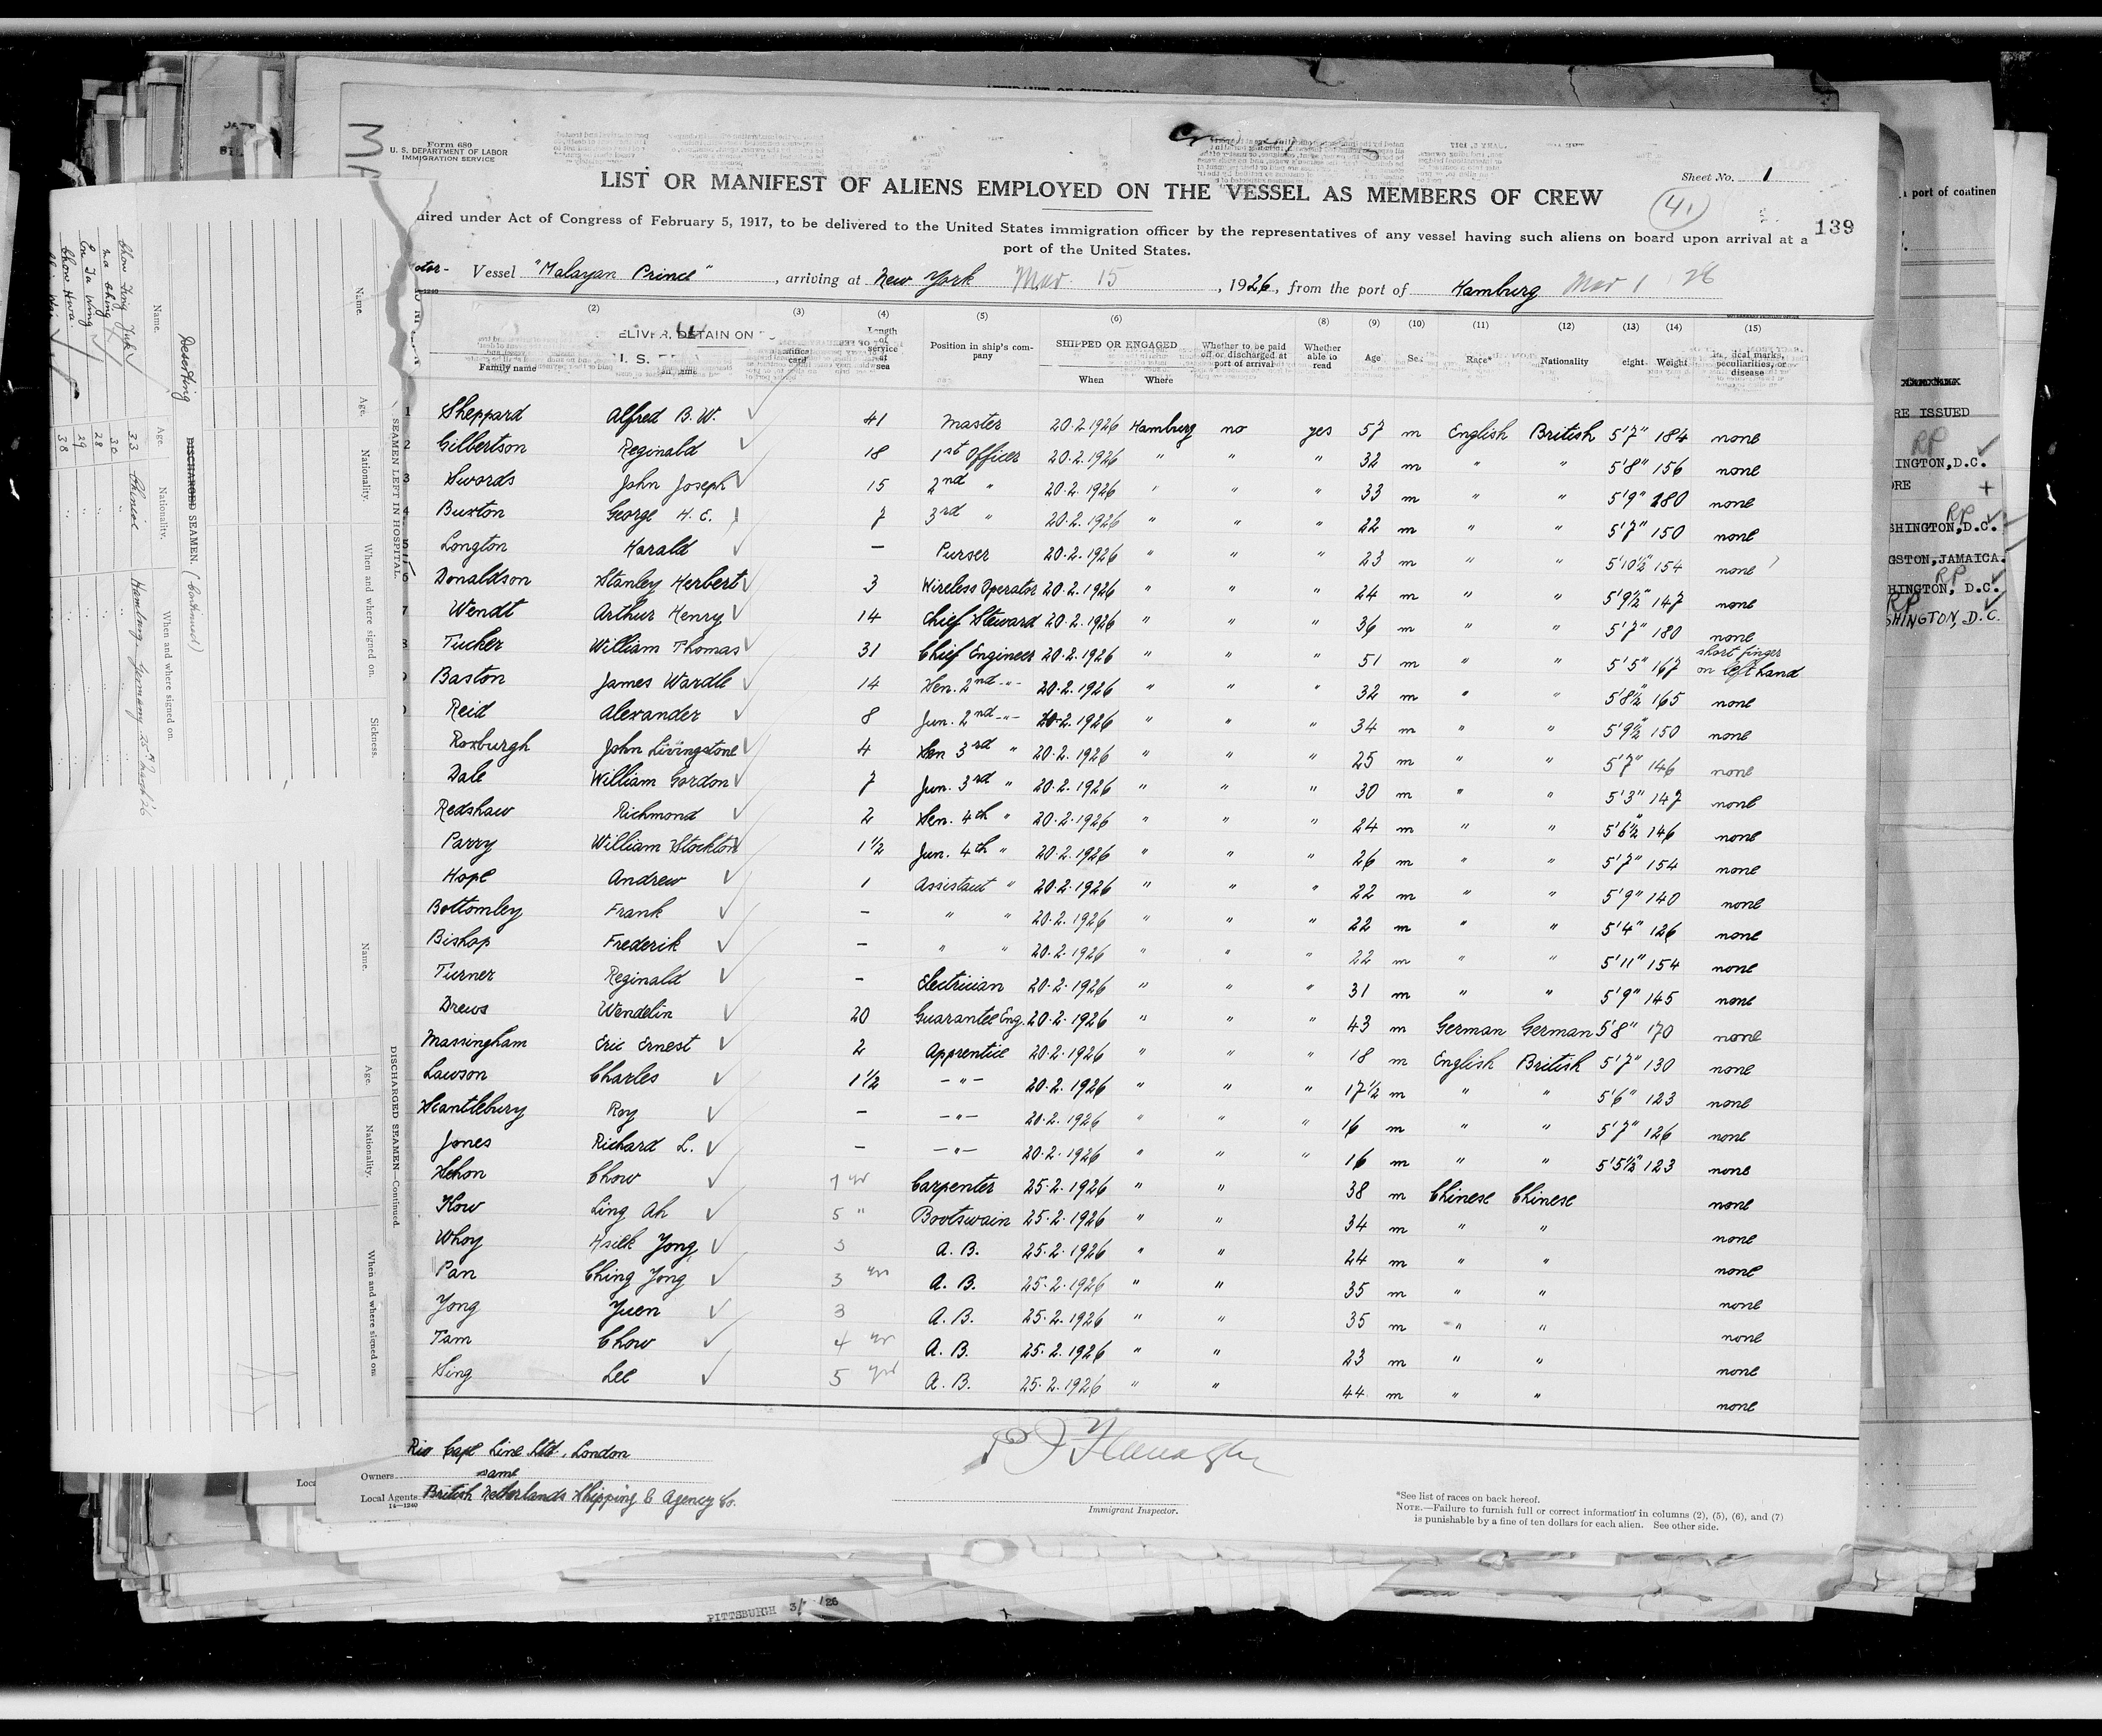 Form 680
U. S. DEPARTMENT OF LABOR
IMMIGRATION SERVICE
Sheet No. 1
LIST OR MANIFEST OF ALIENS EMPLOYED ON THE VESSEL AS MEMBERS OF CREW
(41)
139
uired under Act of Congress of February 5, 1917, to be delivered to the United States immigration officer by the representatives of any vessel having such aliens on board upon arrival at a
port of the United States.
otor- Vessel "Malayan Prince", arriving at New York Mar 15, 1926, from the port of Hamburg Mar 1 26
(2) (3) (4) (5) (6) (8) (9) (10) (11) (12) (13) (14) (15)
Family name
Length of service at sea
Position in ship's company
SHIPPED OR ENGAGED
When Where
Whether to be paid off or discharged at port of arrival
Whether able to read
Age
Race*
Nationality
eight
Weight
peculiarities, or disease
1 Sheppard Alfred B. W. 41 Master 20.2.1926 Hamburg no yes 57 m English British 5'7" 184 none
2 Gilbertson Reginald 18 1st Officer 20.2.1926 " " " 32 m " " 5'8" 156 none
3 Swords John Joseph 15 2nd " 20.2.1926 " " " 33 m " " 5'9" 180 none
4 Buxton George H. E. 7 3rd " 20.2.1926 " " " 22 m " " 5'7" 150 none
5 Longton Harald – Purser 20.2.1926 " " " 23 m " " 5'10½" 154 none
6 Donaldson Stanley Herbert 3 Wireless Operator 20.2.1926 " " " 24 m " " 5'9½" 147 none
7 Wendt Arthur Henry 14 Chief Steward 20.2.1926 " " " 36 m " " 5'7" 180 none
8 Tucker William Thomas 31 Chief Engineer 20.2.1926 " " " 51 m " " 5'5" 167 short finger on left hand
Baston James Wardle 14 Sen. 2nd -"- 20.2.1926 " " " 32 m " " 5'8½" 165 none
Reid Alexander 8 Jun. 2nd -"- 20.2.1926 " " " 34 m " " 5'9½" 150 none
Roxburgh John Livingstone 4 Sen 3rd " 20.2.1926 " " " 25 m " " 5'7" 146 none
Dale William Gordon 7 Jun. 3rd " 20.2.1926 " " " 30 m " " 5'3" 147 none
Redshaw Richmond 2 Sen. 4th " 20.2.1926 " " " 24 m " " 5'6½" 146 none
Parry William Stockton 1½ Jun. 4th " 20.2.1926 " " " 26 m " " 5'7" 154 none
Hope Andrew 1 Assistant " 20.2.1926 " " " 22 m " " 5'9" 140 none
Bottomley Frank – " " 20.2.1926 " " " 22 m " " 5'4" 126 none
Bishop Frederik – " " 20.2.1926 " " " 22 m " " 5'11" 154 none
Turner Reginald – Electrician 20.2.1926 " " " 31 m " " 5'9" 145 none
Drews Wendelin 20 Guarantee Eng. 20.2.1926 " " " 43 m German German 5'8" 170 none
Massingham Eric Ernest 2 Apprentice 20.2.1926 " " " 18 m English British 5'7" 130 none
Lawson Charles 1½ -"- 20.2.1926 " " " 17½ m " " 5'6" 123 none
Scantlebury Roy – -"- 20.2.1926 " " " 16 m " " 5'7" 126 none
Jones Richard L. – -"- 20.2.1926 " " " 16 m " " 5'5½" 123 none
Sehon Chow 7 yr Carpenter 25.2.1926 " " 38 m Chinese Chinese none
How Ling Ah 5 " Bootswain 25.2.1926 " " 34 m " " none
Whoy Hsiek Yong 3 A. B. 25.2.1926 " " 24 m " " none
Pan Ching Yong 3 yrs A. B. 25.2.1926 " " 35 m " " none
Yong Yuen 3 A. B. 25.2.1926 " " 35 m " " none
Tam Chow 4 yr A. B. 25.2.1926 " " 23 m " " none
Sing Lee 5 yrs A. B. 25.2.1926 " " 44 m " " none
Rio Cape Line Ltd, London
Owners same
Local Agents British Netherlands Shipping & Agency Co.
14—1240
Immigrant Inspector.
*See list of races on back hereof.
NOTE.—Failure to furnish full or correct information in columns (2), (5), (6), and (7)
is punishable by a fine of ten dollars for each alien. See other side.
SEAMEN LEFT IN HOSPITAL
Name. Age. Nationality. When and where signed on. Sickness.
DISCHARGED SEAMEN—Continued.
Name. Age. Nationality. When and where signed on
Deserting
DISCHARGED SEAMEN. (Continued)
Name. Age. Nationality. When and where signed on.
33 Chinese Hamburg Germany
30
28
29
38
port of continen
RE ISSUED
RP
INGTON, D.C.
ORE +
RP
SHINGTON, D.C.
GSTON, JAMAICA.
RP
HINGTON, D.C.
RP
SHINGTON, D.C.
PITTSBURGH